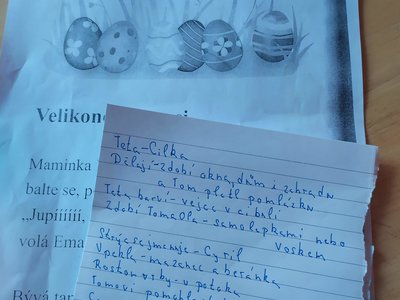 Velikono
Maminka
balte se, p
„Jupíííííí,
volá Ema
Bývá tar
Teta-Cilka
Dělají-zdobí okna, dům i zahradu
a Tom pletl pomlázku
Teta barví-vejce v cibuli
Zdobí Tom a Ola-samolepkami nebo
voskem
Strýc se jmenuje-Cyril
Upekla-mazanec a beránka
Rostou vrby-u potoka
Tomovi pomáh